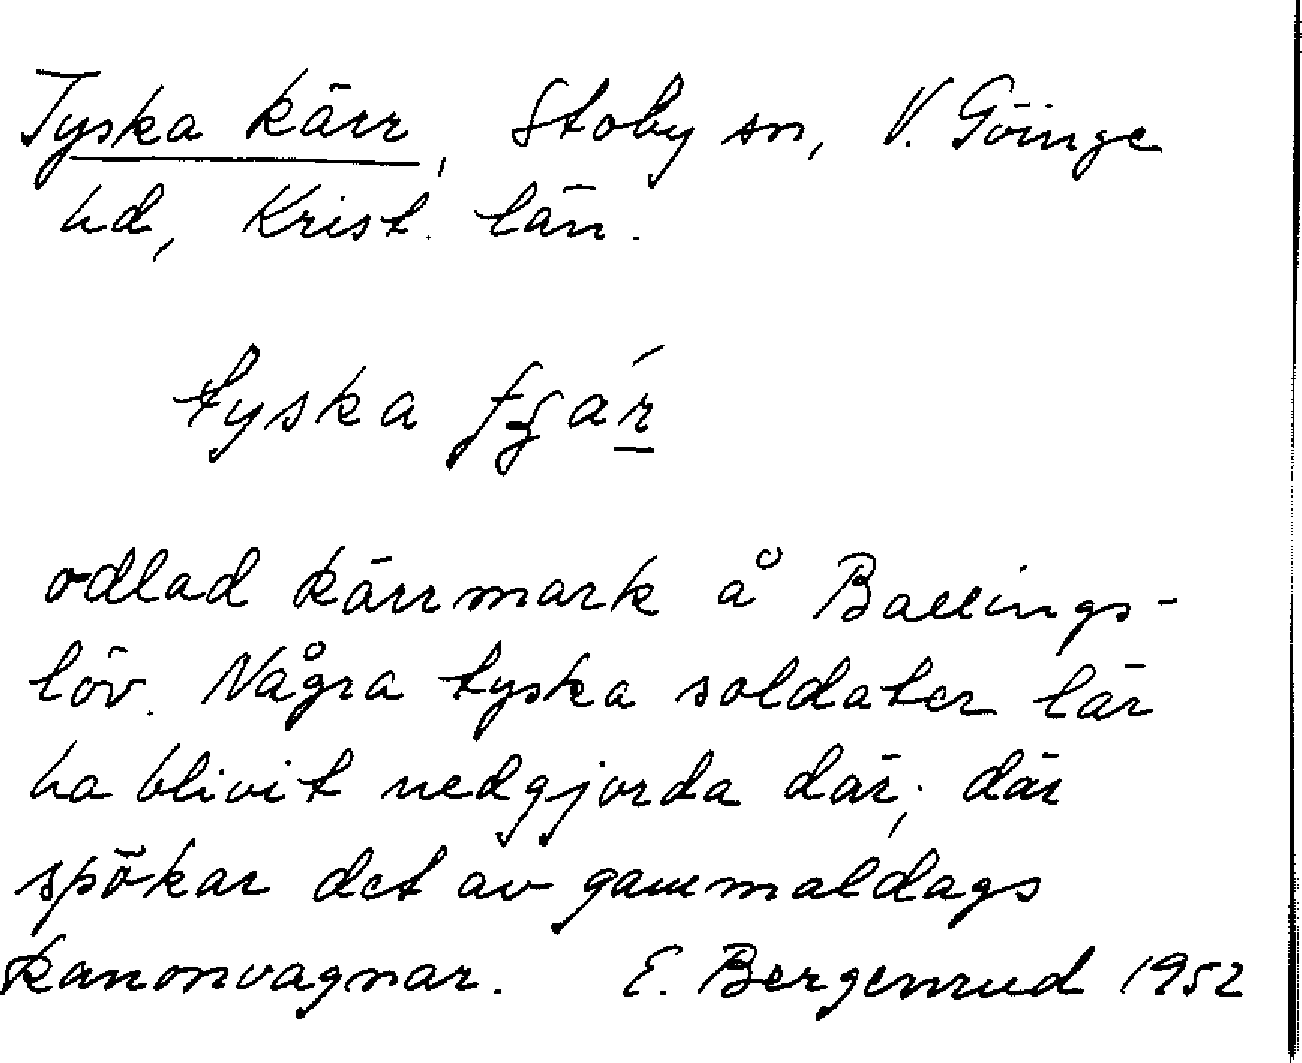 Tyska kärr, Stoby sn, V. Göinge
hd, Krist. län.
tyska
odlad kärrmark å Ballings-
löv. Några tyska soldater lär
ha blivit nedgjorda där; där
spökar det av gammaldags
kanonvagnar. E. Bergenrud 1952